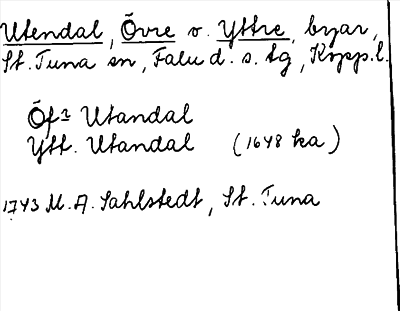 Utendal, Övre o. Yttre, byar,
St. Tuna sn, Falu d. s. tg, Kopp.l.
Öfr Utandal
Ytt. Utandal (1648 ka)
1743 M.A. Sahlstedt, St. Tuna